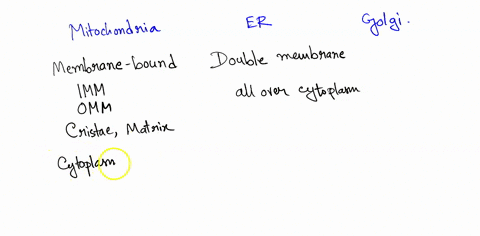 Mitochondria
ER
Golgi.
Membrane-bound
Double membrane
IMM
all over cytoplam
OMM
Cristae, Matrix
Cytoplam